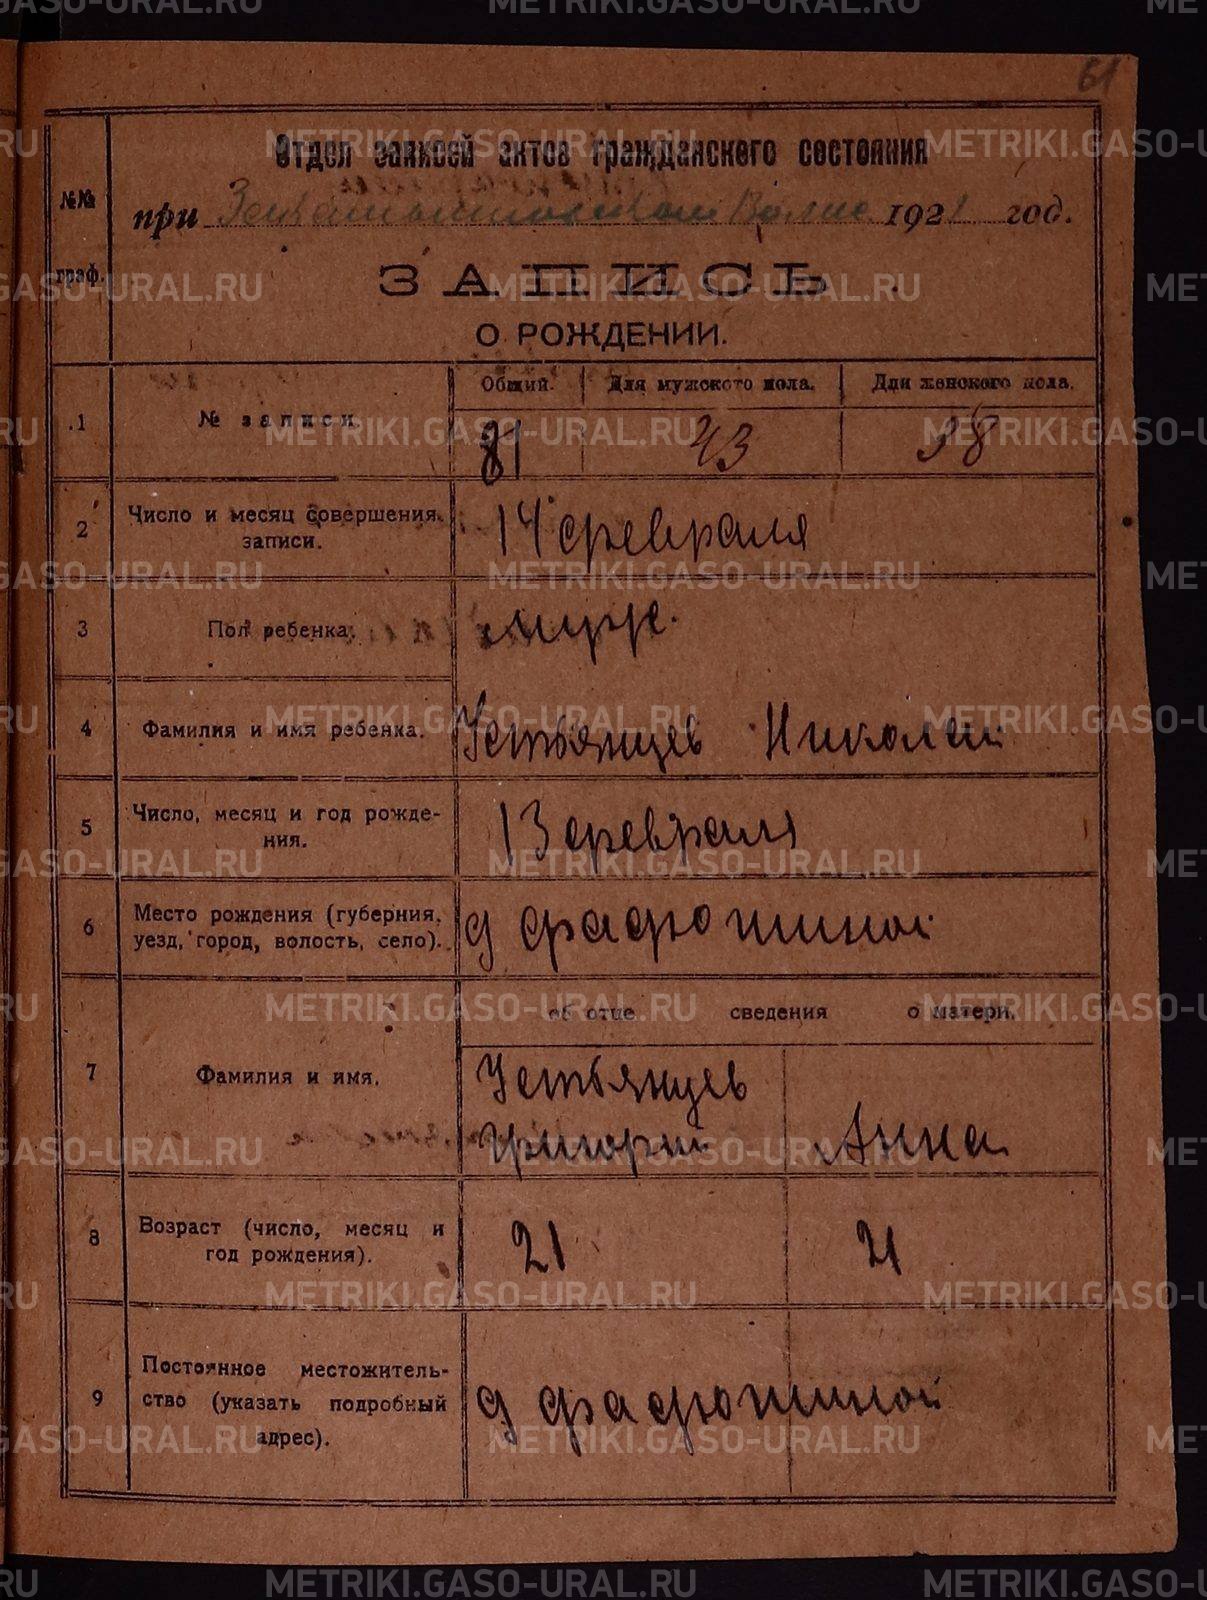 61
Отдел записей актов гражданского состояния
при 1921 год.
№№ граф.
ЗАПИСЬ
О РОЖДЕНИИ.
Общий. Для мужского пола. Для женского пола.
1 № записи. 81 43 38
2 Число и месяц совершения записи. 14 февраля
3 Пол ребенка. муж.
4 Фамилия и имя ребенка. Устьянцев Николай
5 Число, месяц и год рожде-
ния. 13 февраля
6 Место рождения (губерния,
уезд, город, волость, село). д
об отце сведения о матери.
7 Фамилия и имя. Устьянцев
Григорий Анна
8 Возраст (число, месяц и
год рождения). 21 21
9 Постоянное местожитель-
ство (указать подробный
адрес). д
METRIKI.GASO-URAL.RU